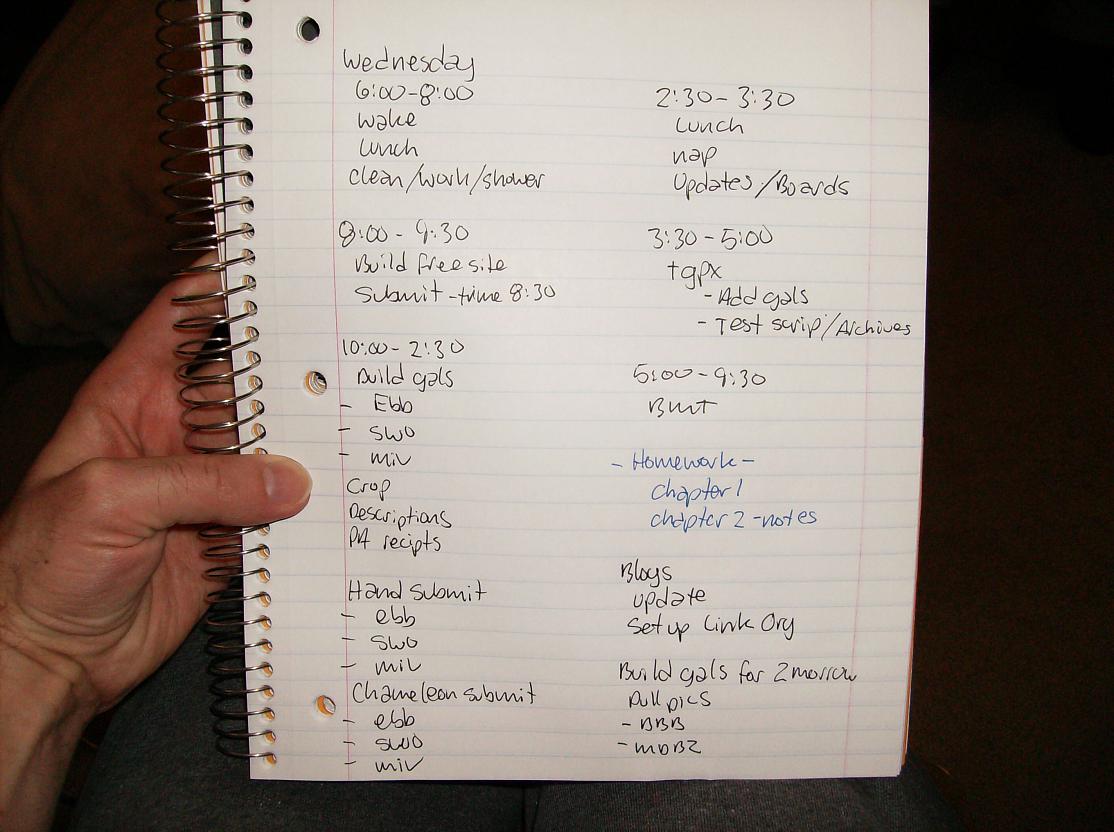 Wednesday
6:00-8:00
wake
Lunch
clean/work/shower
8:00 - 9:30
Build free site
Submit - time 8:30
10:00 - 2:30
Build gals
- Ebb
- SWO
- miv
Crop
Descriptions
PA recipts
Hand submit
- ebb
- SWO
- miv
Chameleon submit
- ebb
- SWO
- miv
2:30 - 3:30
Lunch
nap
Updates/Boards
3:30 - 5:00
tgpx
- Add gals
- Test scrip/Archives
5:00 - 9:30
- Homework -
chapter 1
chapter 2 - notes
Blogs
update
Setup Link Org
Build gals for 2morrow
Pull pics
- BBB
- MDBZ